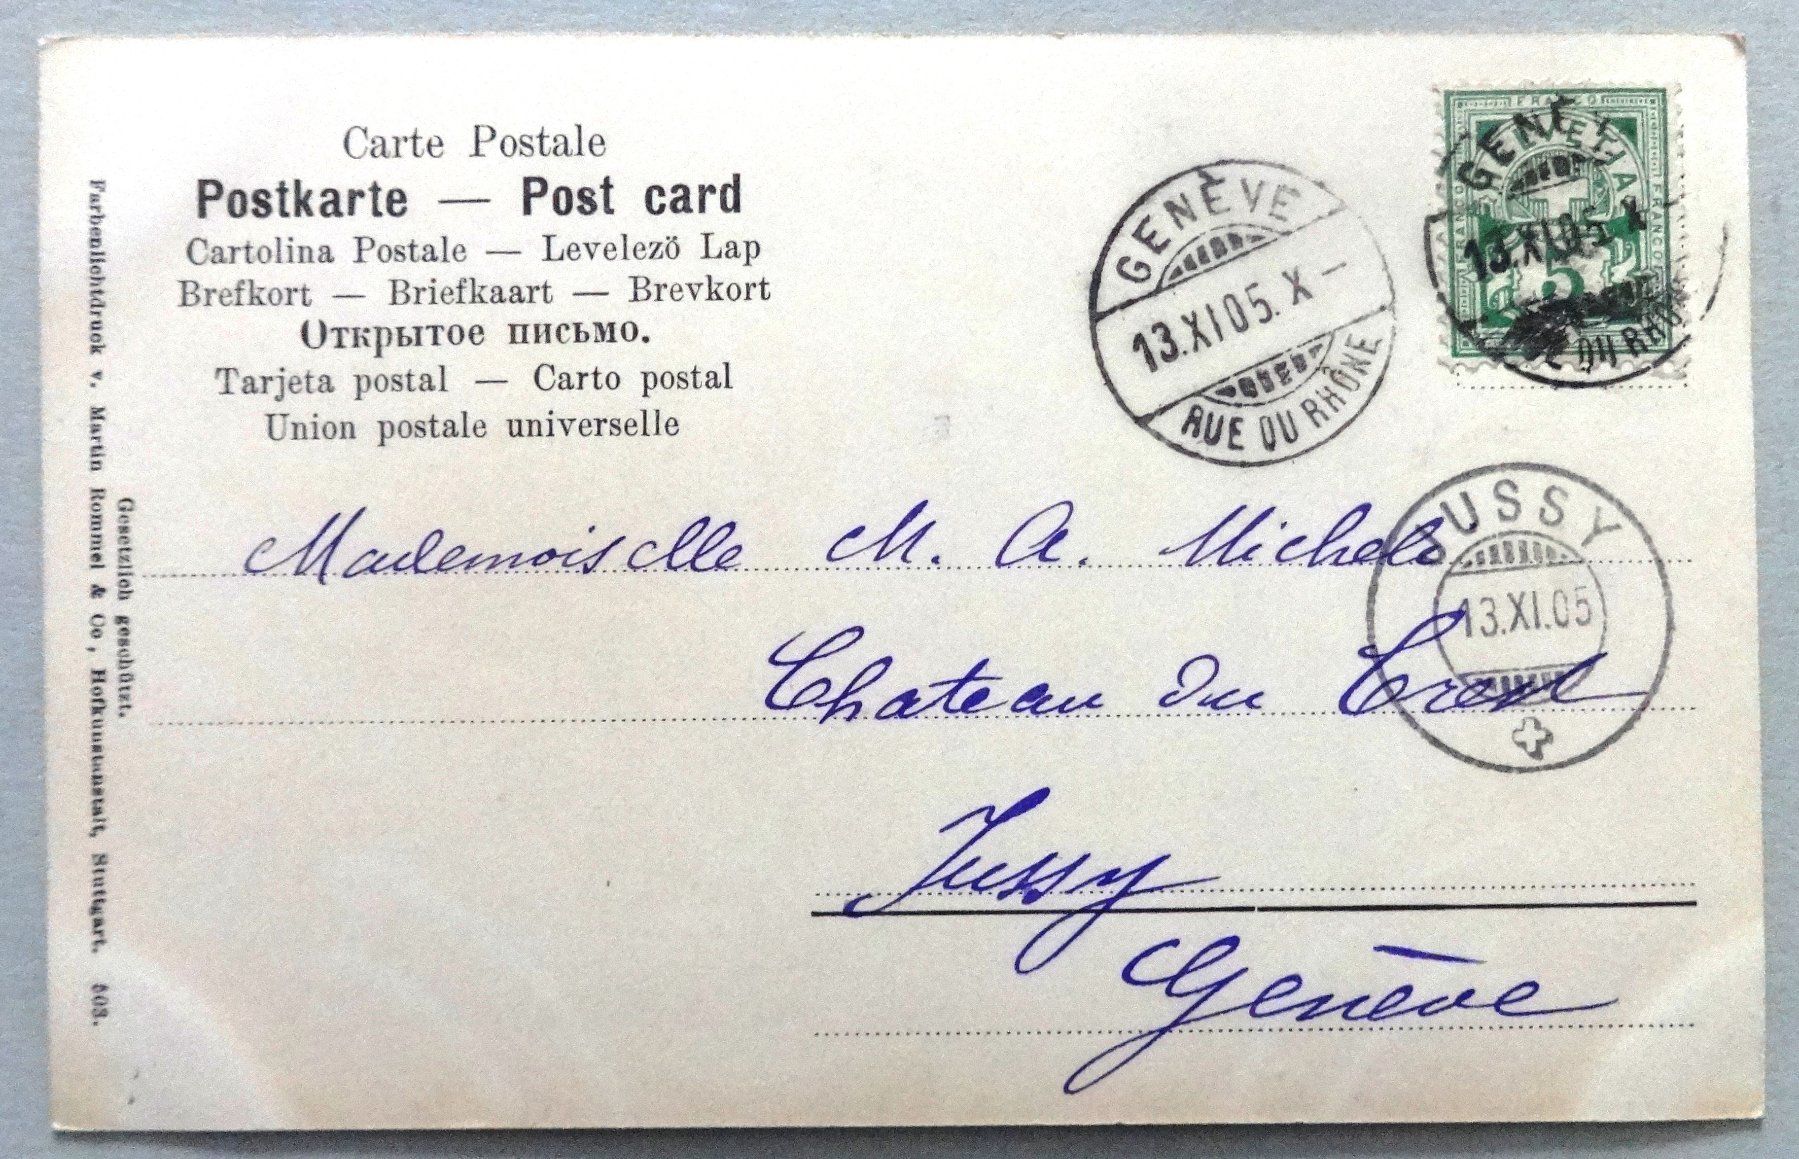 Carte Postale
Postkarte — Post card
Cartolina Postale — Levelező Lap
Brefkort — Briefkaart — Brevkort
Открытое письмо.
Tarjeta postal — Carto postal
Union postale universelle
Farbenlichtdruck v. Martin Rommel & Co., Hofkunstanstalt, Stuttgart. 503.
Gesetzlich geschützt.
GENÈVE
13.XI.05. X –
RUE DU RHÔNE
FRANCO
HELVETIA
FRANCO
FRANCO
5
GENÈVE
13.XI.05. X –
RUE DU RHÔNE
JUSSY
13.XI.05
Mademoiselle M. A. Micheli
Chateau du Crest
Jussy
Genève